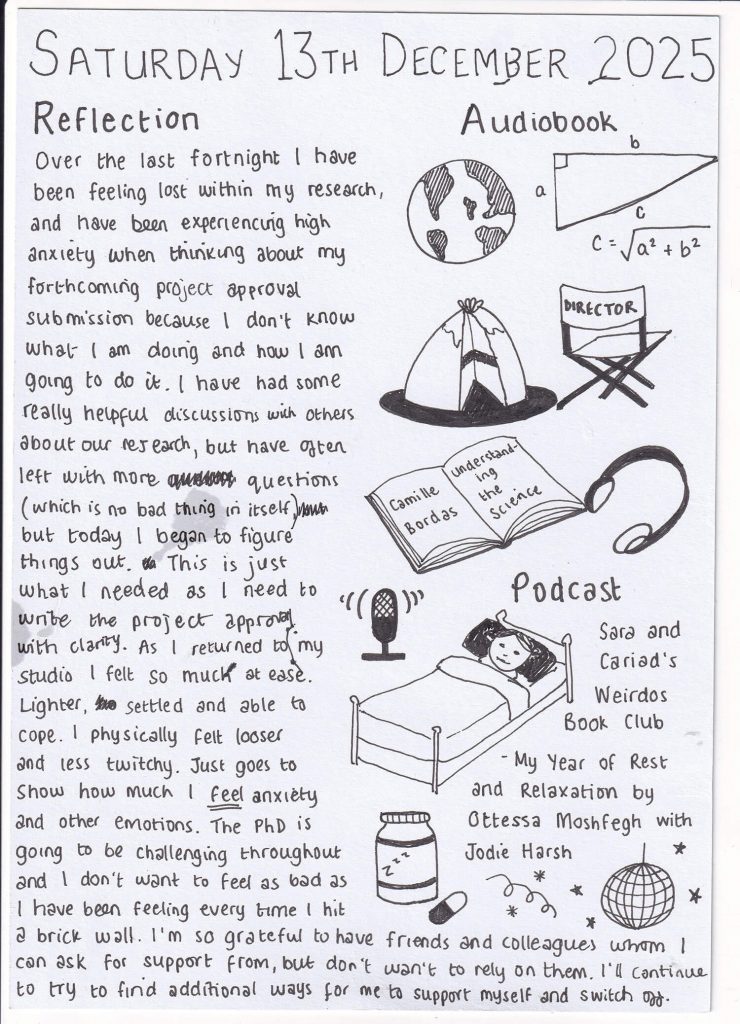 SATURDAY 13TH DECEMBER 2025
Reflection
Over the last fortnight I have
been feeling lost within my research,
and have been experiencing high
anxiety when thinking about my
forthcoming project approval
submission because I don't know
what I am doing and how I am
going to do it. I have had some
really helpful discussions with others
about our research, but have often
left with more questions
(which is no bad thing in itself),
but today I began to figure
things out. This is just
what I needed as I need to
write the project approval
with clarity. As I returned to my
studio I felt so much at ease.
Lighter, settled and able to
cope. I physically felt looser
and less twitchy. Just goes to
show how much I feel anxiety
and other emotions. The PhD is
going to be challenging throughout
and I don't want to feel as bad as
I have been feeling every time I hit
a brick wall. I'm so grateful to have friends and colleagues whom I
can ask for support from, but don't wan't to rely on them. I'll continue
to try to find additional ways for me to support myself and switch off.
Audiobook
b
a
c
c = √a² + b²
DIRECTOR
Camille
Bordas
understand-
ing
the
science
Podcast
Sara and
Cariad's
Weirdos
Book Club
- My Year of Rest
and Relaxation by
Ottessa Moshfegh with
Jodie Harsh
zzz